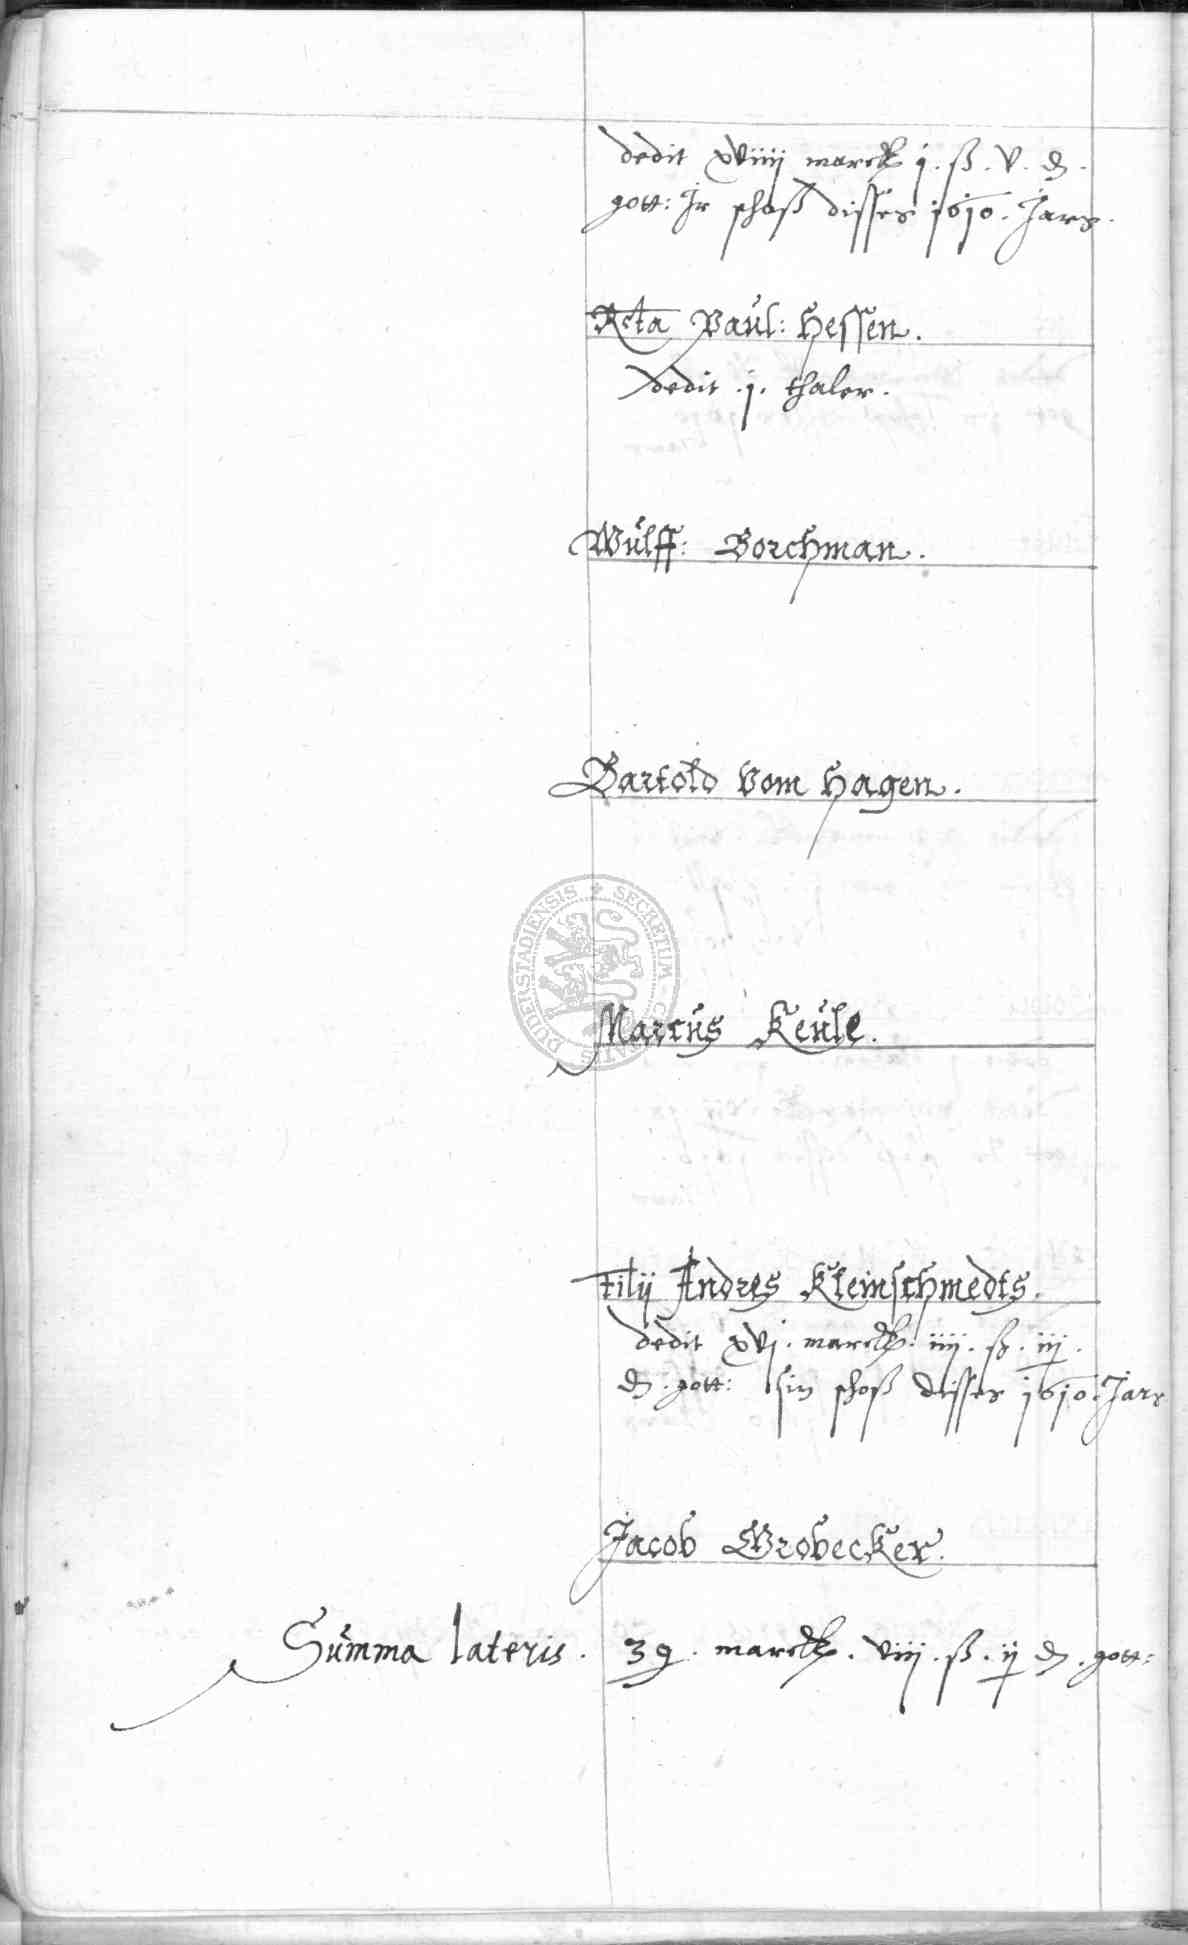 dedit xviiij marck j. ß. v. ₰.
gott: Jr schoß disses 1610. Jars.
Relicta Paul: Hessen.
dedit .j. thaler.
Wulff: Borchman.
Bartold vom Hagen.
DUDERSTADIENSIS SECRETUM
Marcus Keule.
Filij Andres Kleinschmedts.
dedit xvj. marck. iiij. ß. iij.
₰. gott: sin schoß disses 1610. Jars
Jacob Grobecker.
Summa lateris. 39. marck. viij. ß. ij ₰. gott: